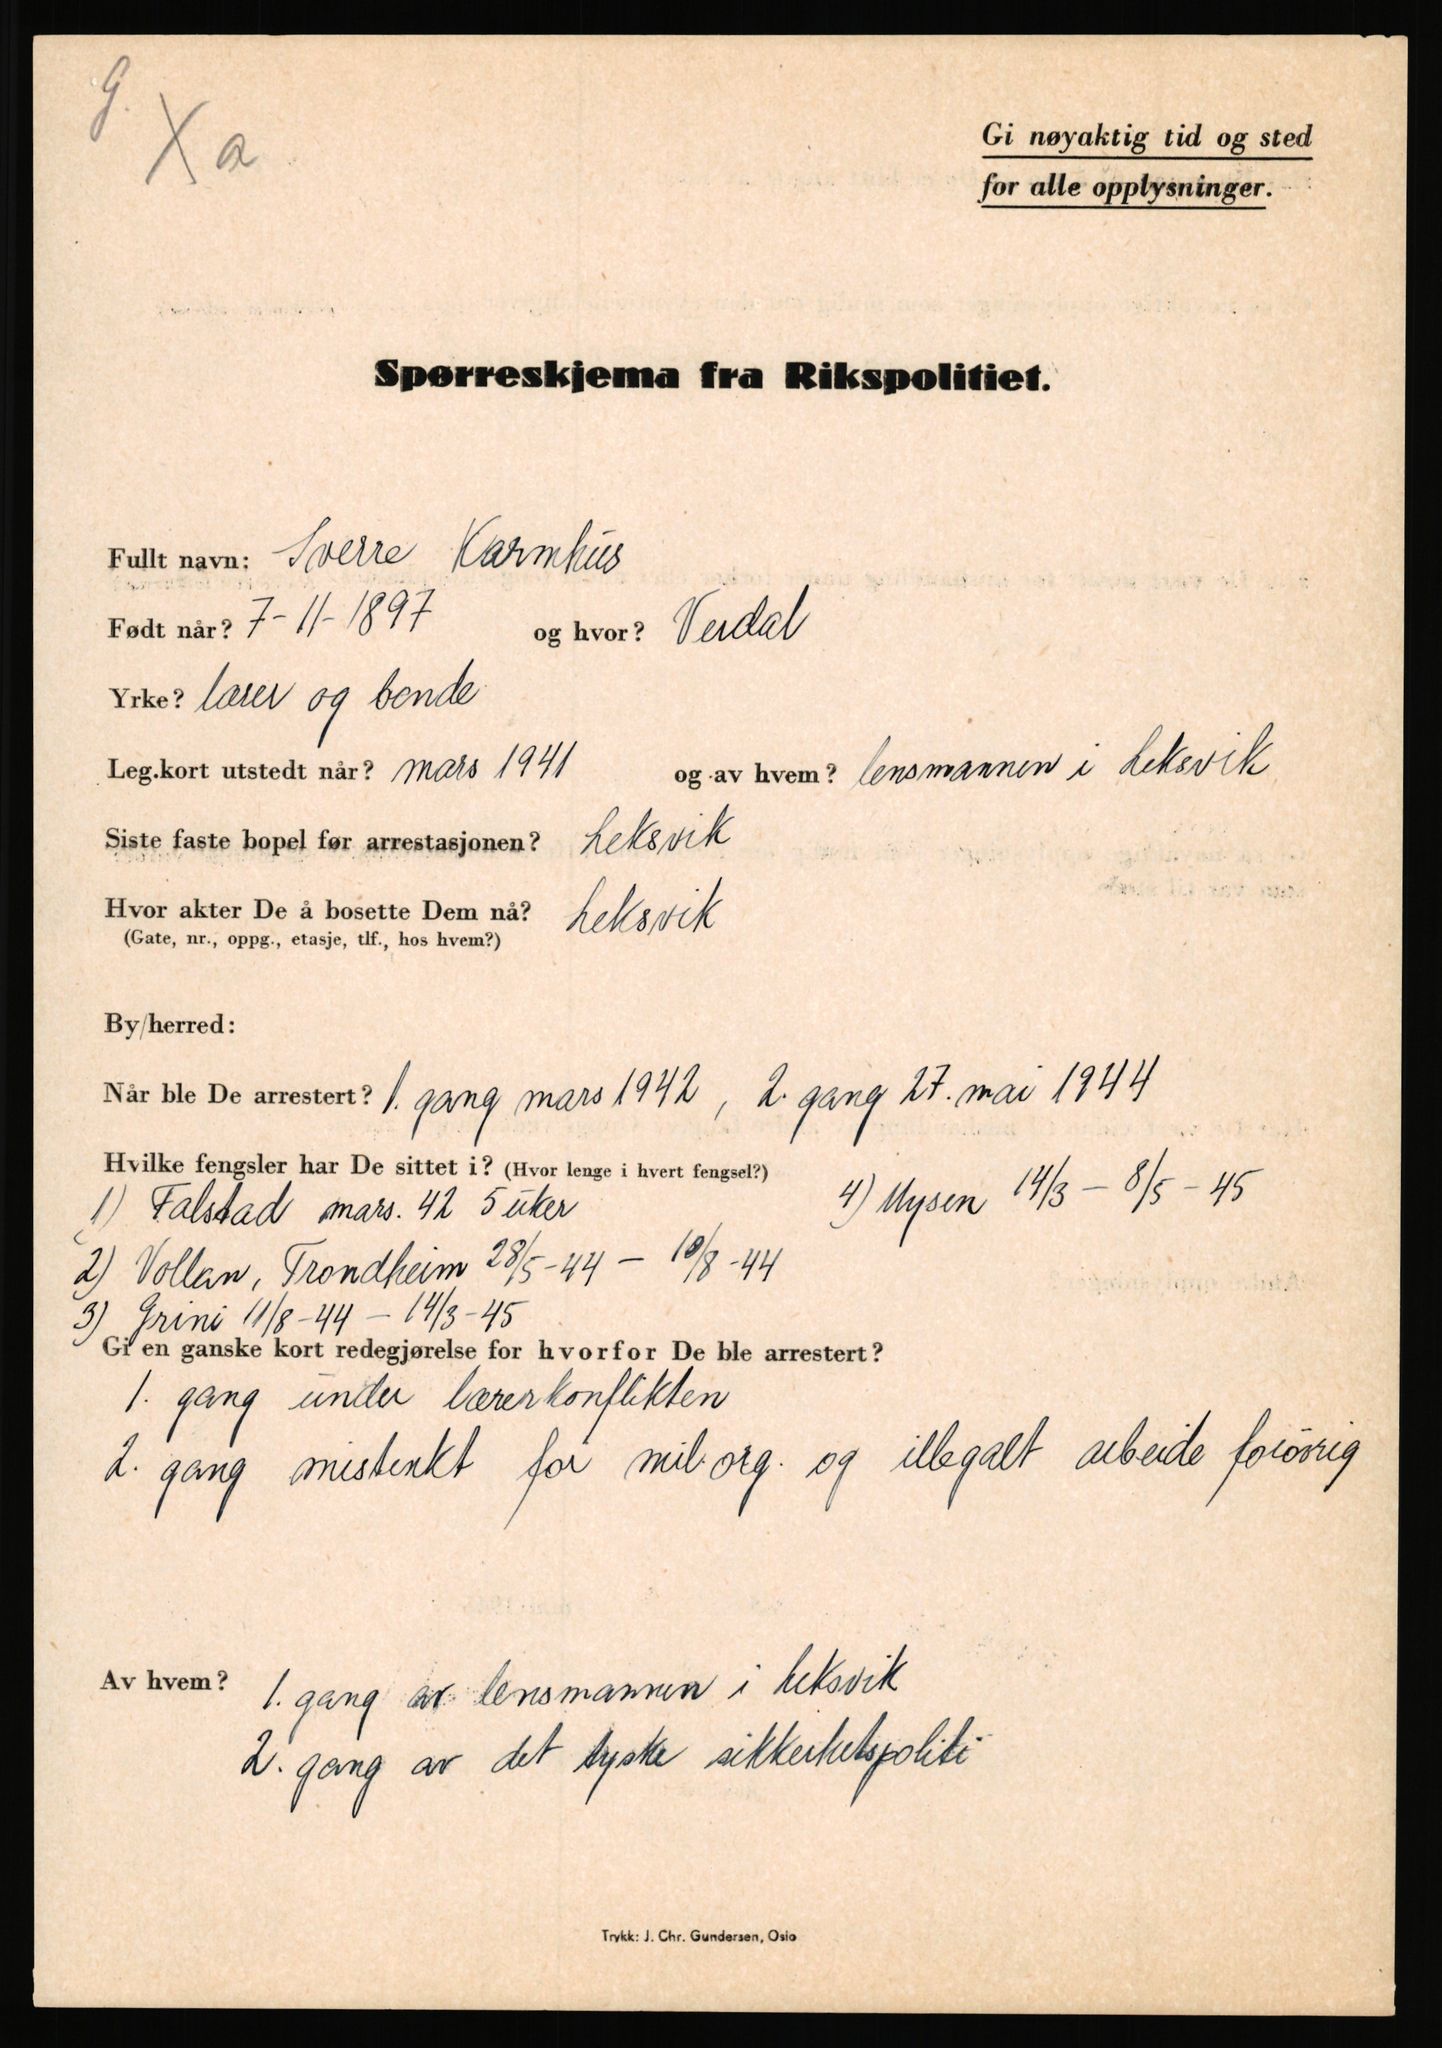 G.
X a
Gi nøyaktig tid og sted
for alle opplysninger.
Spørreskjema fra Rikspolitiet.
Fullt navn: Sverre Karmhus
Født når? 7-11-1897 og hvor? Verdal
Yrke? lærer og bonde
Leg.kort utstedt når? mars 1941 og av hvem? lensmannen i Leksvik
Siste faste bopel før arrestasjonen? Leksvik
Hvor akter De å bosette Dem nå? Leksvik
(Gate, nr., oppg., etasje, tlf., hos hvem?)
By/herred:
Når ble De arrestert? 1. gang mars 1942, 2. gang 27. mai 1944
Hvilke fengsler har De sittet i? (Hvor lenge i hvert fengsel?)
1) Falstad mars. 42 5 uker 4) Mysen 14/3 - 8/5 - 45
2) Vollan, Trondheim 28/5-44 - 10/8-44
3) Grini 11/8-44 - 14/3-45
Gi en ganske kort redegjørelse for hvorfor De ble arrestert?
1. gang under lærerkonflikten
2. gang mistenkt for mil.org. og illegalt arbeide forøvrig
Av hvem? 1. gang av lensmannen i Leksvik
2. gang av det tyske sikkerhetspoliti
Trykk: J. Chr. Gundersen, Oslo